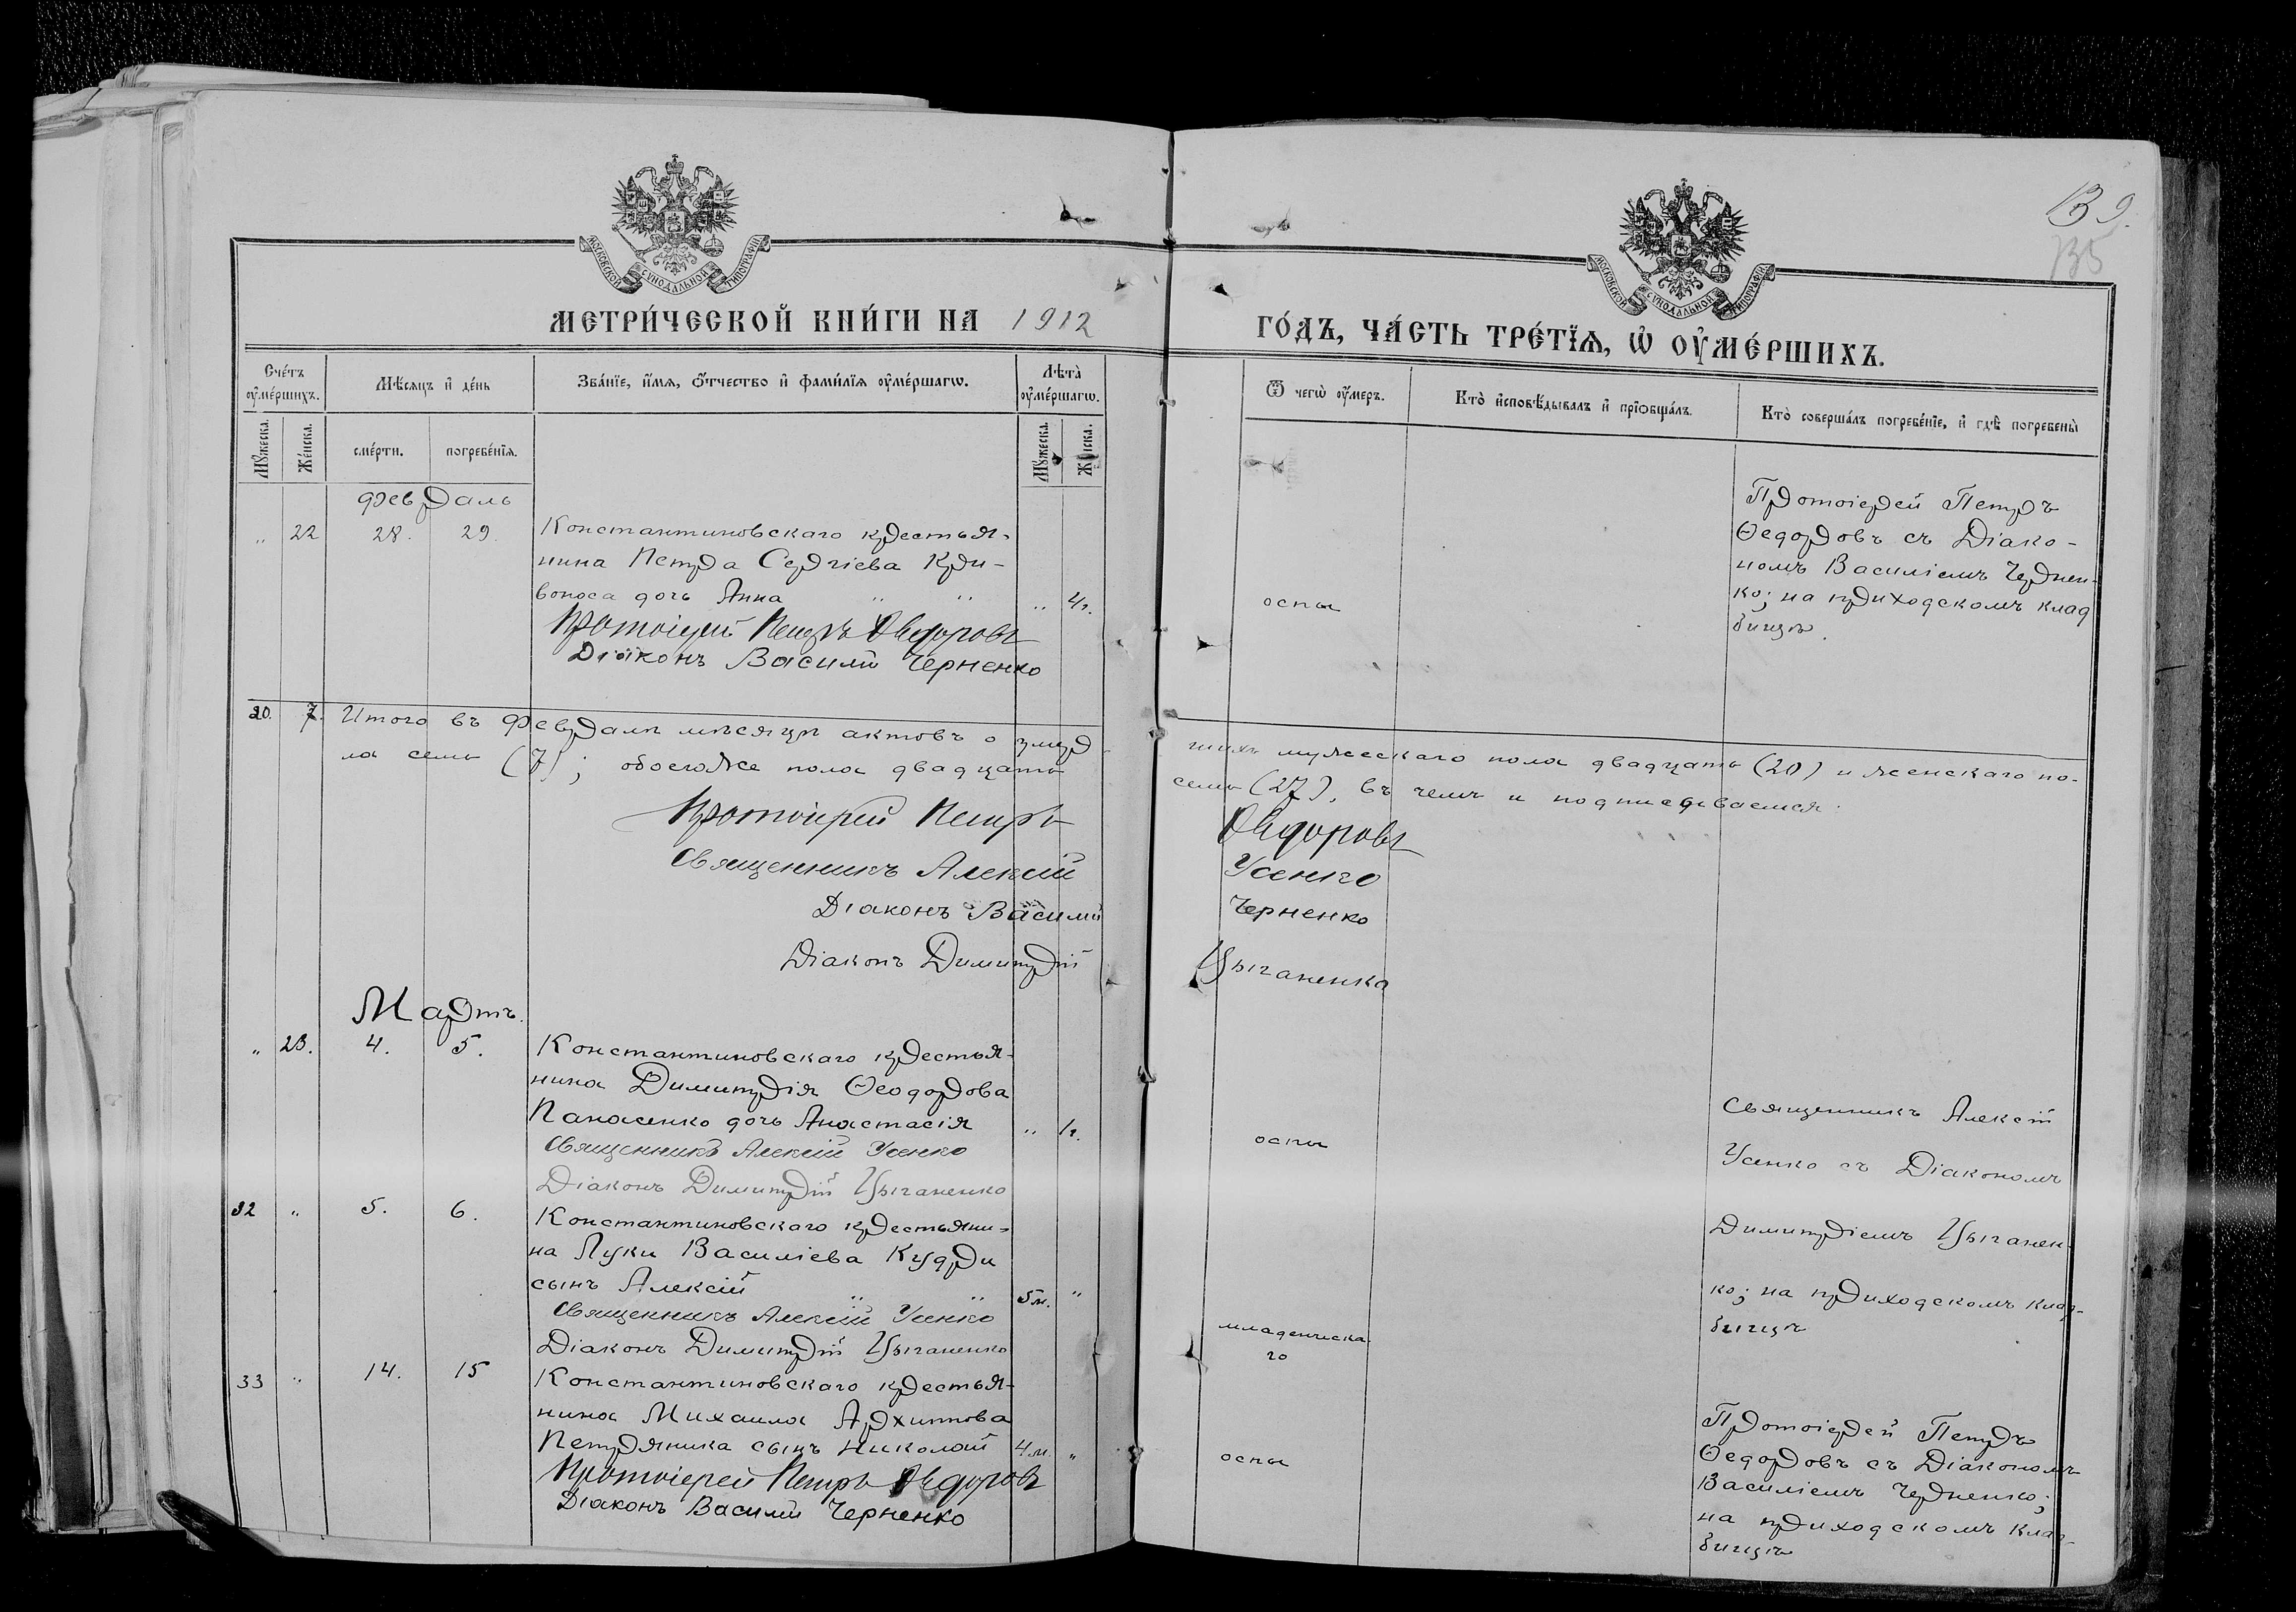 139.
135
МОСКОВСКОЙ СѴНОДАЛЬНОЙ ТИПОГРАФІИ
МОСКОВСКОЙ СѴНОДАЛЬНОЙ ТИПОГРАФІИ
МЕТРИ́ЧЕСКОЙ КНИ́ГИ НА 1912
ГО́ДЪ, ЧА́СТЬ ТРЕ́ТЇѦ, Ѡ҆ ОУ҆МЕ́РШИХЪ.
Сче́тъ оу҆ме́ршихъ.
Мѣ́сяцъ и҆ де́нь
Зва́нїе, и҆́мѧ, ѻ҆́тчество и҆ фами́лїѧ оу҆ме́ршагѡ.
Лѣта̀ оу҆ме́ршагѡ.
Ѿ чегѡ̀ оу҆́меръ.
Кто̀ и҆сповѣ́дывалъ и҆ прїѻбща́лъ.
Кто̀ соверша́лъ погребе́нїе, и҆ гдѣ̀ погребены̀
Мꙋ́жеска.
Же́нска.
сме́рти.
погребе́нїѧ.
Мꙋ́жеска.
Же́нска.
Февраль
„ 22 28. 29.
Константиновскаго крестья-
нина Петра Сергіева Кри-
воноса дочь Анна " " „ 4 г.
Протоіерей Петръ Ѳедоровъ
Діаконъ Василій Черненко
оспы
Протоіерей Петръ
Ѳедоровъ съ Діако-
номъ Василіемъ Чернен-
ко; на приходскомъ клад
бищѣ.
20. 7. Итого въ Февралѣ мѣсяцѣ актовъ о умер-
шихъ мужескаго пола двадцать (20) и женскаго по-
ла семь (7); обоегоже пола двадцать
семь (27), въ чемъ и подписываемся:
Протоіерей Петръ Ѳедоровъ
Священникъ Алексій Усенко
Діаконъ Василій Черненко
Діаконъ Димитрій Цыганенко
Мартъ.
„ 23. 4. 5.
Константиновскаго крестья-
нина Димитрія Ѳеодорова
Панасенко дочь Анастасія „ 1 г.
Священникъ Алексій Усенко
Діаконъ Димитрій Цыганенко
оспы
Священникъ Алексій
Усенко съ Діакономъ
Димитріемъ Цыганен-
ко; на приходскомъ клад-
бищѣ
32 „ 5. 6.
Константиновскаго крестьяни-
на Луки Василіева Кудри
сынъ Алексій " " 5 м. "
Священникъ Алексій Усенко
Діаконъ Димитрій Цыганенко
младенческа-
го
33 „ 14. 15
Константиновскаго крестья-
нина Михаила Архипова
Петряника сынъ Николай 4 м. "
Протоіерей Петръ Ѳедоровъ
Діаконъ Василій Черненко
оспы
Протоіерей Петръ
Ѳедоровъ съ Діакономъ
Василіемъ Черненко;
на приходскомъ клад-
бищѣ